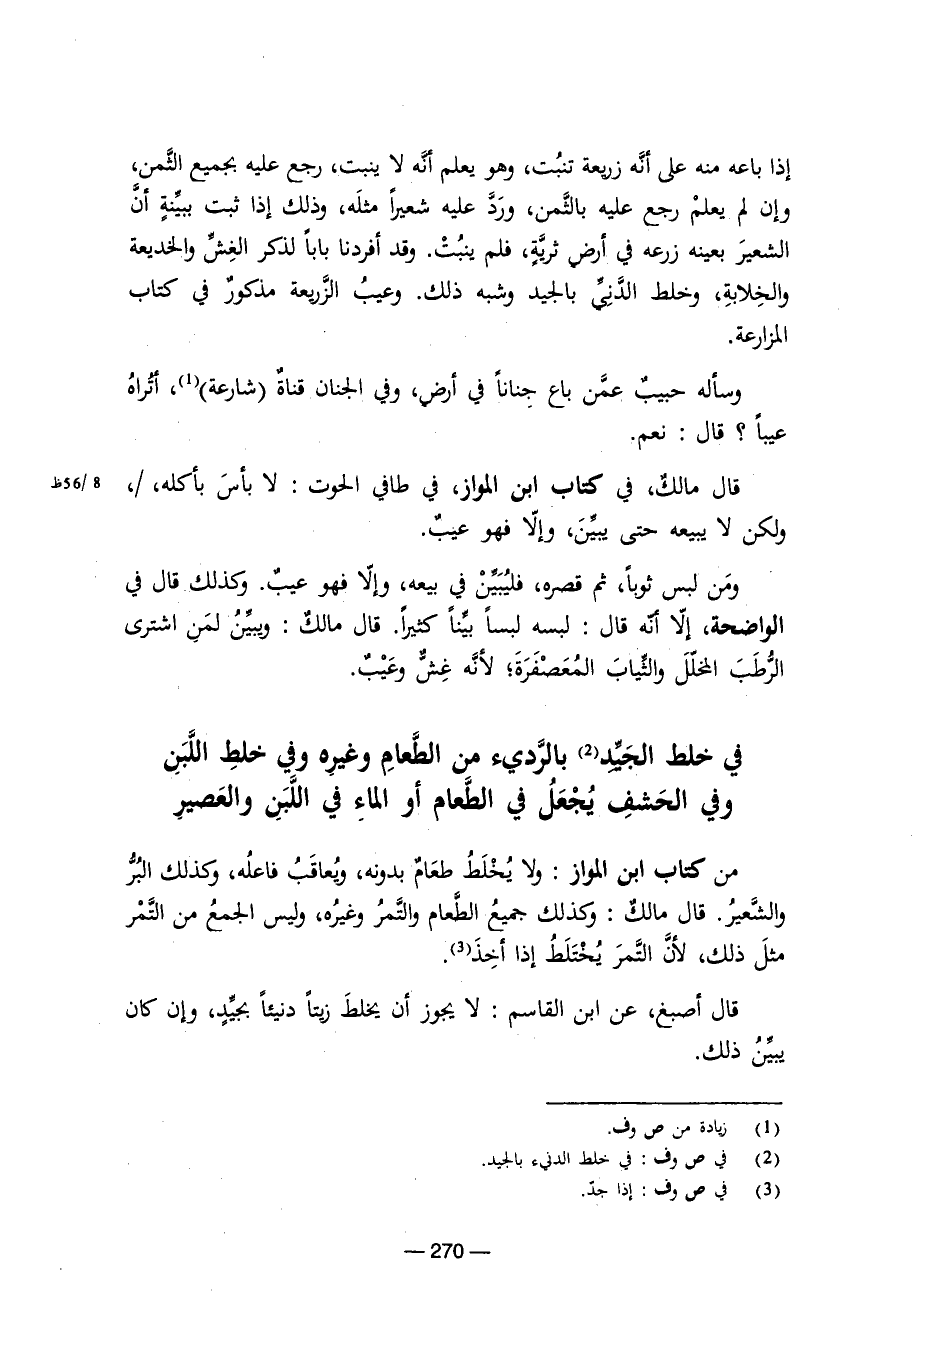 إذا باعه منه على أنَّه زريعة تنبُت، وهو يعلم أنَّه لا ينبت، رجع عليه بجميع الثَّمن،
وإن لم يعلمْ رجع عليه بالثَّمن، ورَدَّ عليه شعيراً مثلَه، وذلك إذا ثبت ببيِّنةٍ أنَّ
الشعيرَ بعينه زرعه في أرضٍ ثريَّةٍ، فلم ينبُتْ. وقد أفردنا باباً لذكر الغِشِّ والخديعة
والخِلابةِ، وخلط الدَّنِيِّ بالجيد وشبه ذلك. وعيبُ الزَّريعة مذكورٌ في كتاب
المزارعة.
وسأله حبيبٌ عمَّن باع جِناناً في أرض، وفي الجنان قناةٌ (شارعة)(1)، أتُراهُ
عيباً ؟ قال : نعم.
قال مالكٌ، في كتاب ابن المواز، في طافي الحوت : لا بأسَ بأكله، /، 8 /56ظ
ولكن لا يبيعه حتى يبيِّنَ، وإلّا فهو عيبٌ.
ومَن لبس ثوباً، ثم قصره، فليُبَيِّنْ في بيعه، وإلّا فهو عيبٌ. وكذلك قال في
الواضحة، إلّا أنّه قال : لبسه لبساً بيِّناً كثيراً. قال مالكٌ : ويبيِّنُ لمَنِ اشترى
الرُّطَبَ المخلّلَ والثِّيابَ المُعَصْفَرَةَ؛ لأنَّه غِشٌّ وعَيْبٌ.
في خلط الجَيِّدِ(2) بالرَّديء من الطَّعامِ وغيرِه وفي خلطِ اللَّبَنِ
وفي الحَشفِ يُجْعَلُ في الطَّعام أو الماء في اللَّبَنِ والعَصيرِ
من كتاب ابن المواز : ولا يُخْلَطُ طعَامٌ بدونه، ويُعاقَبُ فاعلُه، وكذلك البُرُّ
والشَّعيرُ. قال مالكٌ : وكذلك جميعُ الطَّعام والتَّمرُ وغيرُه، وليس الجمعُ من التَّمْر
مثلَ ذلك، لأنَّ التَّمرَ يُخْتَلَطُ إذا أخِذَ(3).
قال أصبغ، عن ابن القاسم : لا يجوز أن يخلطَ زيتاً دنيئاً بجيِّدٍ، وإن كان
يبيِّنُ ذلك.
(1) زيادة من ص وف.
(2) في ص وف : في خلط الدنيء بالجيد.
(3) في ص وف : إذا جدّ.
— 270 —